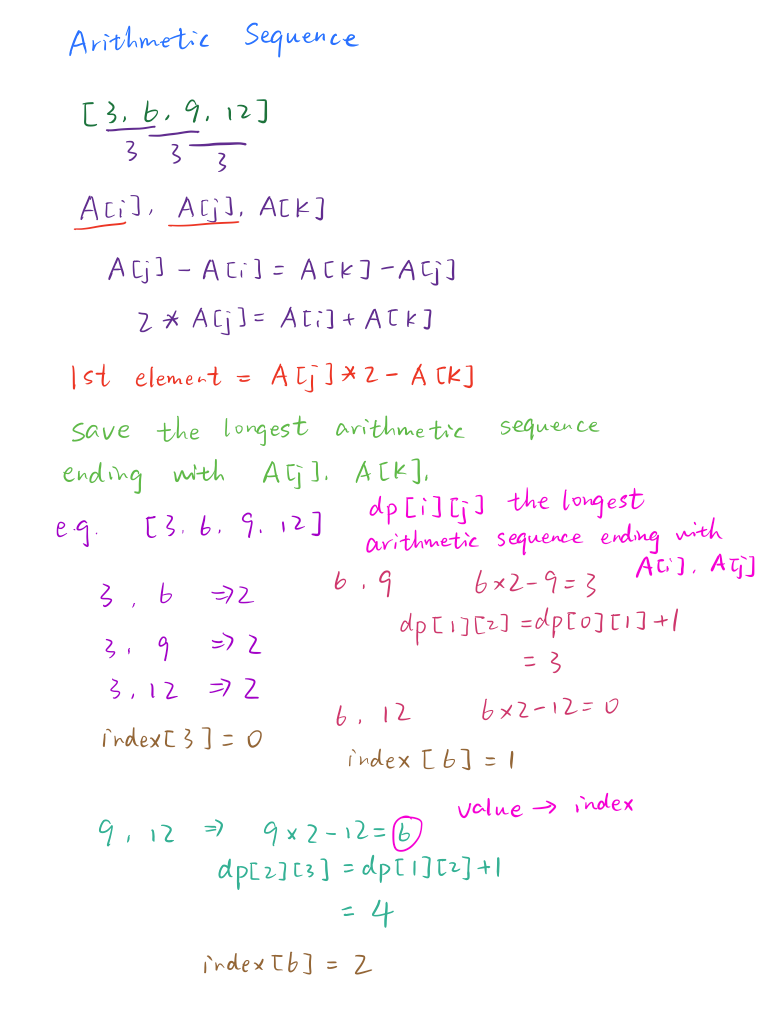 Arithmetic Sequence
[3, 6, 9, 12]
3 3 3
A[i], A[j], A[k]
A[j] - A[i] = A[k] - A[j]
2 * A[j] = A[i] + A[k]
1st element = A[j] * 2 - A[k]
save the longest arithmetic sequence
ending with A[j], A[k].
e.g. [3, 6, 9, 12]
dp[i][j] the longest
arithmetic sequence ending with
A[i], A[j]
3, 6 => 2
3, 9 => 2
3, 12 => 2
index[3] = 0
6, 9 6×2-9=3
dp[1][2] = dp[0][1]+1
= 3
6, 12 6×2-12=0
index[6] = 1
value → index
9, 12 => 9×2-12=6
dp[2][3] = dp[1][2]+1
= 4
index[6] = 2